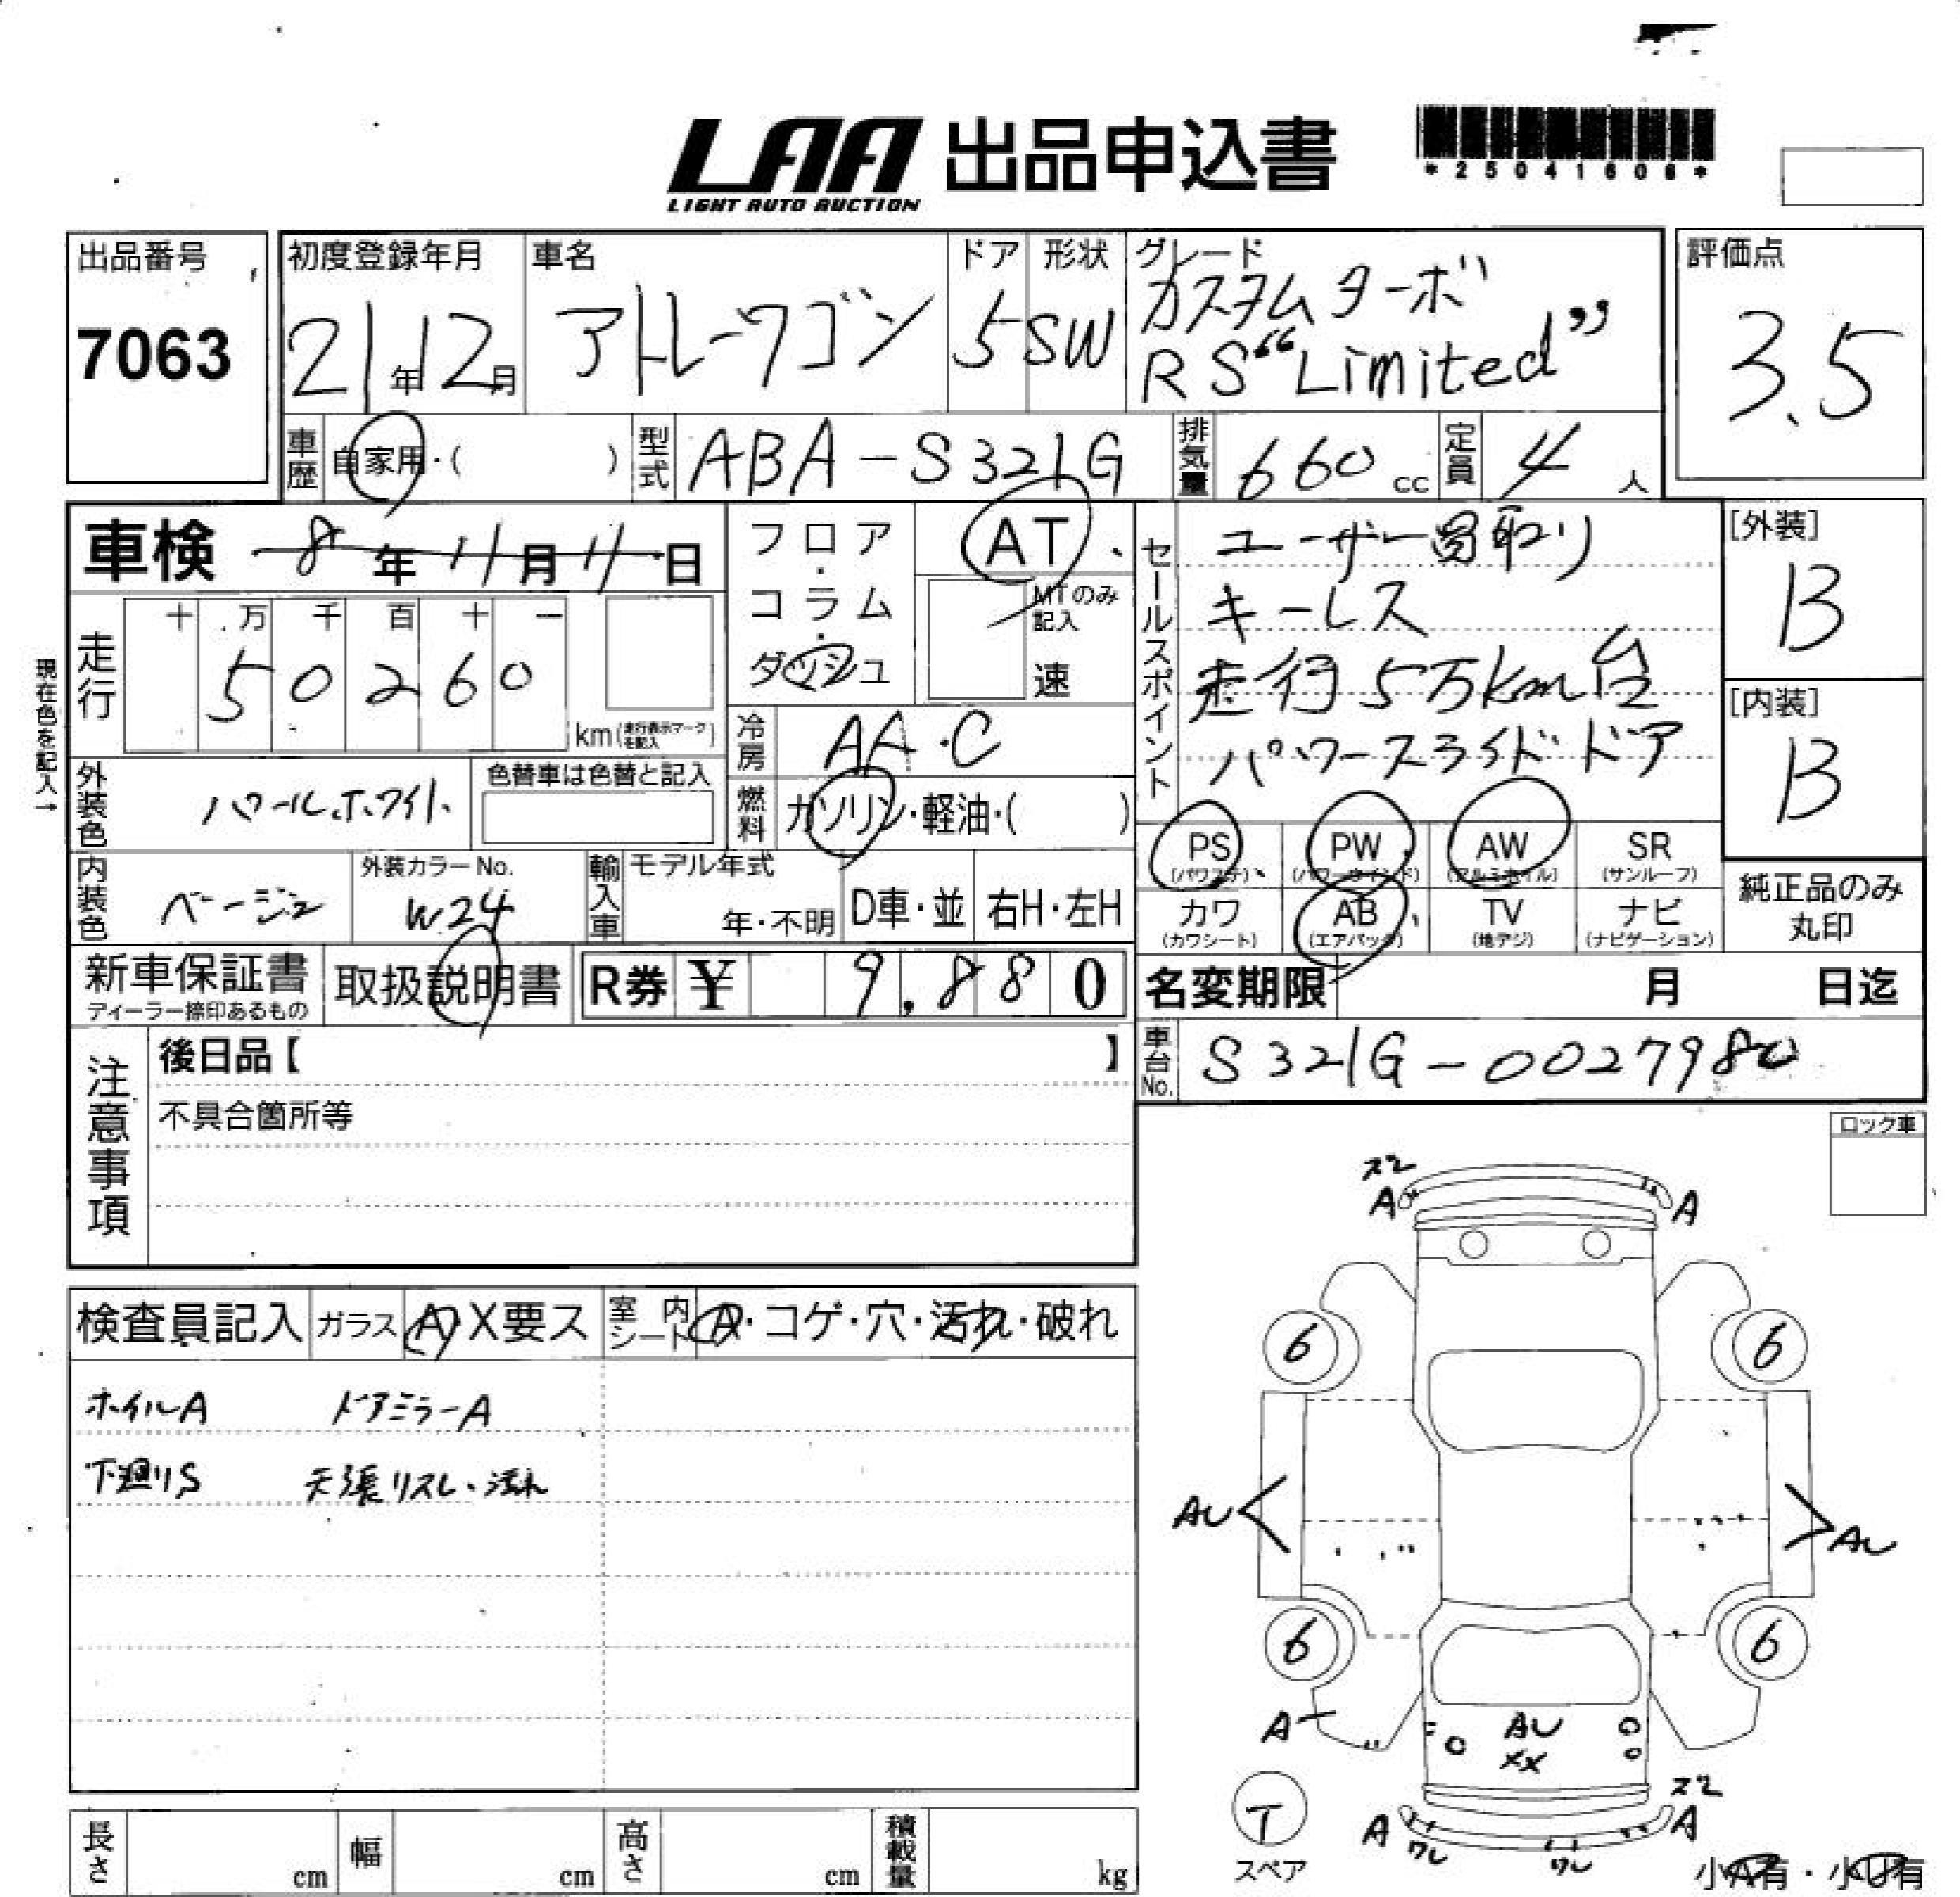 LAA 出品申込書
LIGHT AUTO AUCTION
*25041606*
出品番号
7063
初度登録年月
21年12月
車名
アトレーワゴン
ドア
5
形状
SW
グレード
カスタムターボ
RS“Limited”
評価点
3.5
車歴
自家用・( )
型式
ABA-S321G
排気量
660 cc
定員
4 人
車検 8年11月11日
フロア・コラム・ダッシュ
AT
MTのみ記入
速
セールスポイント
ユーザー買取り
キーレス
走行5万km台
パワースライドドア
[外装]
B
[内装]
B
現在色を記入→
走行
十 万 千 百 十 一
5 0 2 6 0
km(走行表示マークを記入)
冷房
AA・C
外装色
パールホワイト
色替車は色替と記入
燃料
ガソリン・軽油・( )
PS (パワステ)
PW (パワーウインド)
AW (アルミホイル)
SR (サンルーフ)
内装色
ベージュ
外装カラーNo.
W24
輸入車
モデル年式
年・不明
D車・並
右H・左H
カワ (カワシート)
AB (エアバック)
TV (地デジ)
ナビ (ナビゲーション)
純正品のみ
丸印
新車保証書
ディーラー捺印あるもの
取扱説明書
R券 ¥ 9,880
名変期限 月 日迄
注意事項
後日品【 】
不具合箇所等
車台No.
S321G-0027980
ロック車
検査員記入
ガラス
A X要ス
室内シート
A・コゲ・穴・汚れ・破れ
ホイルA ドアミラーA
下廻りS 天張リスレ・汚れ
スレ
A A
6 6
AU AU
6 6
A
AU
XX
スレ
A A
ワレ ワレ
T
スペア
小A有・小U有
長さ cm
幅 cm
高さ cm
積載量 kg